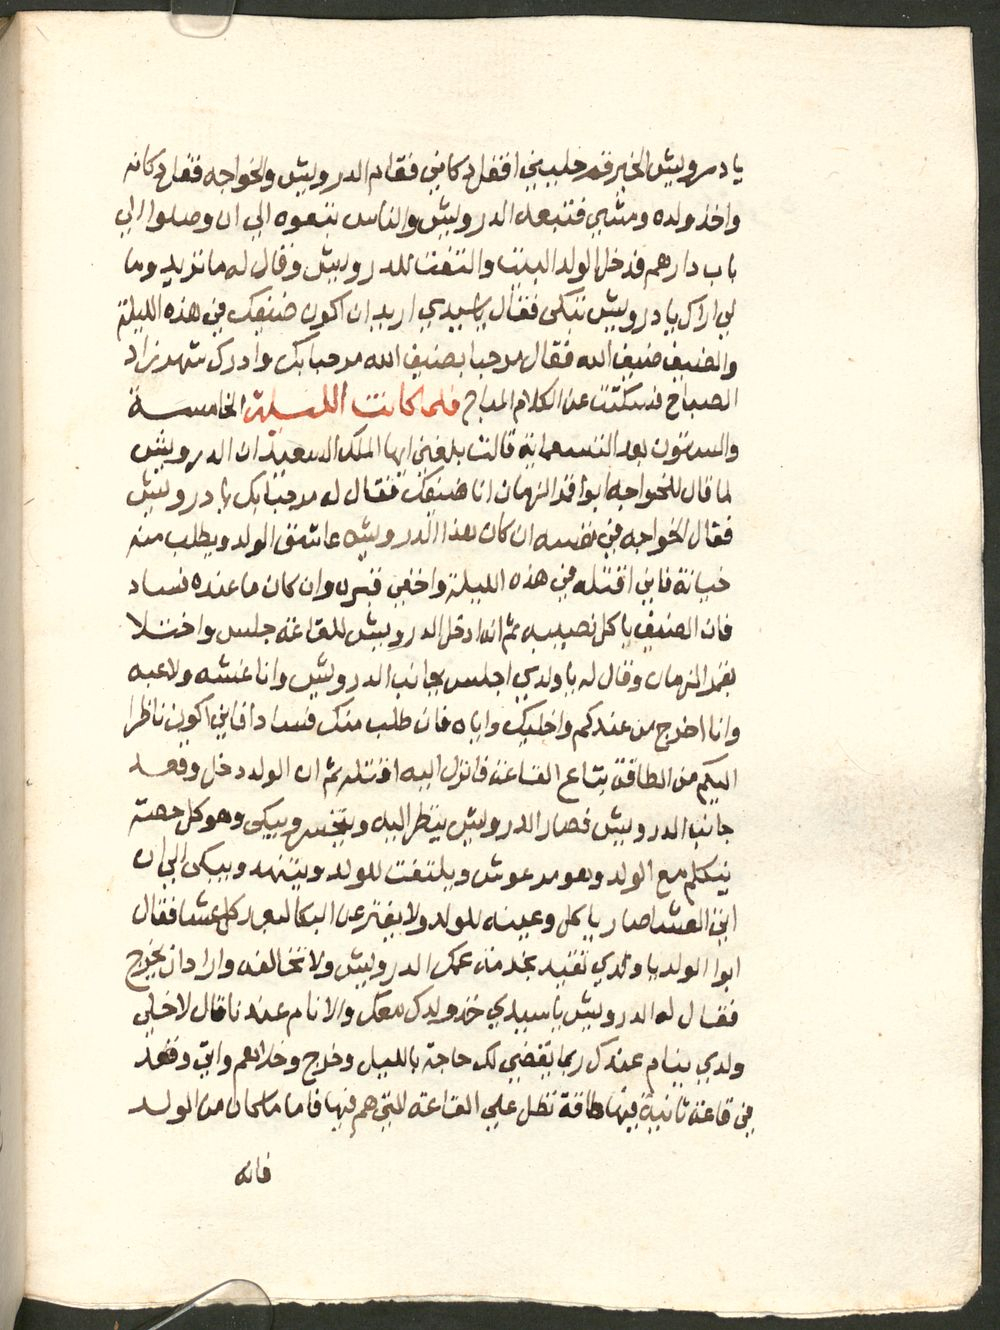 يا درويش الخير قم خليني اقفل دكاني فقام الدرويش والخواجه قفل دكانه
واخذ ولده ومشي فتبعه الدرويش والناس تتبعوه الي ان وصلوا الي
باب دارهم فدخل الولد البيت والتفت للدرويش وقال له ما تريد وما
لي اراك يا درويش تبكي فقال يا سيدي اريد ان اكون ضيفك في هذه الليلة
والضيف ضيف الله فقال مرحبا بضيف الله مرحبا بك وادرك شهرزاد
الصباح فسكتت عن الكلام المباح فلما كانت الليلة الخامسة
والستون بعد التسعماية قالت بلغني ايها الملك السعيد ان الدرويش
لما قال للخواجه ابوا قمر الزمان انا ضيفك فقال له مرحبا بك يا درويش
فقال الخواجه في نفسه ان كان هذا الدرويش عاشق الولد ويطلب منه
خيانة فاني اقتله في هذه الليلة واخفي قبره وان كان ما عنده فساد
فان الضيف ياكل نصيبه ثم انه ادخل الدرويش للقاعه جلس واختلا
بقمر الزمان وقال له يا ولدي اجلس بجانب الدرويش وناغشه ولاعبه
وانا اخرج من عندكم واخليك واياه فان طلب منك فسادا فاني اكون ناظرا
اليكم من الطاقة بتاع القاعة فانزل اليه اقتله ثم ان الولد دخل وقعد
جانب الدرويش فصار الدرويش ينظر اليه ويتحسر ويبكي وهو كل حصة
يتكلم مع الولد وهو مرعوش ويلتفت للولد ويتنهد ويبكي الي ان
اتي العشا صار ياكل وعينه للولد ولا يفتر عن البكا لبعد كل عشا فقال
ابوا الولد يا ولدي تقيد بخدمة عمك الدرويش ولا تخالفه واراد ان يخرج
فقال له الدرويش يا سيدي خذ ولدك معك والا نام عندنا قال لا خلي
ولدي ينام عندك ربما يقضي لك حاجة بالليل وخرج وخلاهم واتي وقعد
في قاعة ثانية فيها طاقة تطل علي القاعه التي هم فيها فاما ما كان من الولد
فانه